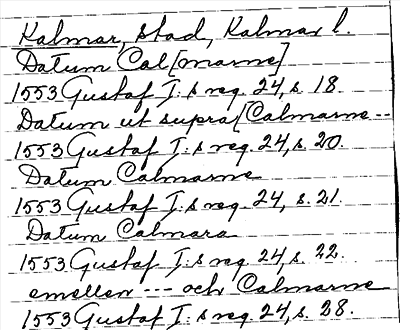 Kalmar, stad, Kalmar l.
Datum Cal[marne]
1553 Gustaf I:s reg. 24, s. 18.
Datum ut supra [Calmarne --
1553 Gustaf I:s reg. 24, s. 20.
Datum Calmarne
1553 Gustaf I:s reg. 24, s. 21.
Datum Calmara
1553 Gustaf I:s reg. 24, s. 22.
emellen --- och Calmarne
1553 Gustaf I:s reg. 24, s. 28.